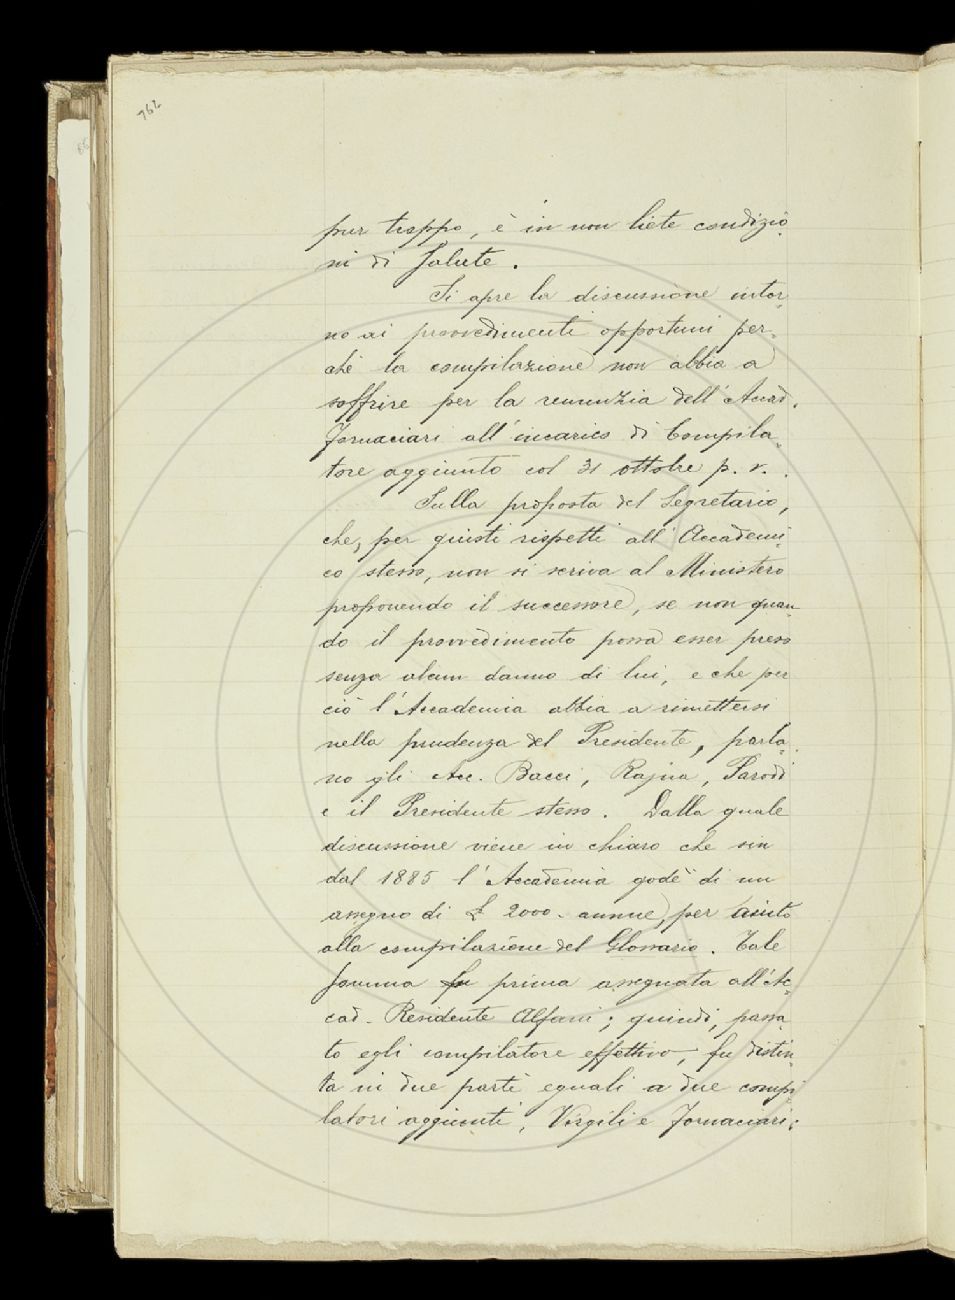 762
pur troppo, è in non liete condizio-
ni di salute.
Si apre la discussione intor-
no ai provvedimenti opportuni per-
chè la compilazione non abbia a
soffrire per la renunzia dell'Accad.
Fornaciari all'incarico di Compila-
tore aggiunto col 31 ottobre p. v..
Sulla proposta del Segretario,
che, per giusti rispetti all'Accademi-
co stesso, non si scriva al Ministero
proponendo il successore, se non quan-
do il provvedimento possa esser preso
senza alcun danno di lui, e che per
ciò l'Accademia abbia a rimettersi
nella prudenza del Presidente, parla-
no gli Acc. Bacci, Rajna, Parodi
e il Presidente stesso. Dalla quale
discussione viene in chiaro che sin
dal 1885 l'Accademia godè di un
assegno di £ 2000. annue, per aiuto
alla compilazione del Glossario. Tale
somma fu prima assegnata all'Ac-
cad. Residente Alfani; quindi, passa-
to egli compilatore effettivo, fu distin-
ta in due parti eguali a due compi-
latori aggiunti, Virgili e Fornaciari;